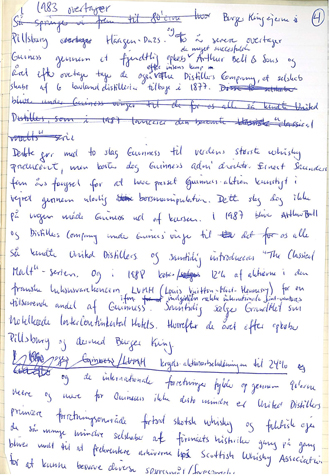 1983 overtager
4
Så springer vi frem til 80'erne hvor Burger King ejerne i
Pillsbury overtager Häagen-Dazs. To år senere overtager
Guinness gennem et fjendtlig opkøb Arthur Bell & Sons og
året efter overtager de også Distillers Company, et selskab
skabt af 6 lowland distillerier tilbage i 1877.
blive under Guinness vinger til de for os alle så kendte United
Distillers, som i 1987 lancerer den berømte classical
malts serie
Dette gør med to slag Guinness til verdens største whisky
producent, men koster dog Guinness adm. direktør Ernest Saunders
fem års fængsel for at have presset Guinness-aktien kunstigt i
vejret gennem ulovlig børsmanipulation. Dette slog dog ikke
på nogen måde Guinness ud af kursen. I 1987 blev Arthur Bell
og Distillers Company under Guinness vinger til det for os alle
så kendte United Distillers og samtidig introduceres "The Classical
Malt" - serien. Og i 1988 købes 12% af aktierne i den
franske luksusvarekoncern LVMH (Louis Vuitton-Moët Hennessy) for en
tilsvarende andel af Guinness. Samtidig sælger GrandMet sin
hotelkæde InterContinental Hotels. Hvorefter de året efter opkøber
Pillsbury og dermed Burger King.
Guinness/LVMH krydsaktiebeholdningen til 24% og
og de internationale foretninger fyldte op gennem 90'erne
mere og mere for Guinness ikke mindst United Distillers
primære forretningsområde fortsat skotsk whisky og
de så mange mindre selskaber af firmaets historie gang på gang
blive nødt til at frekventere arkiverne hos Scottish Whisky Association
for at kunne besvare diverse spørgsmål